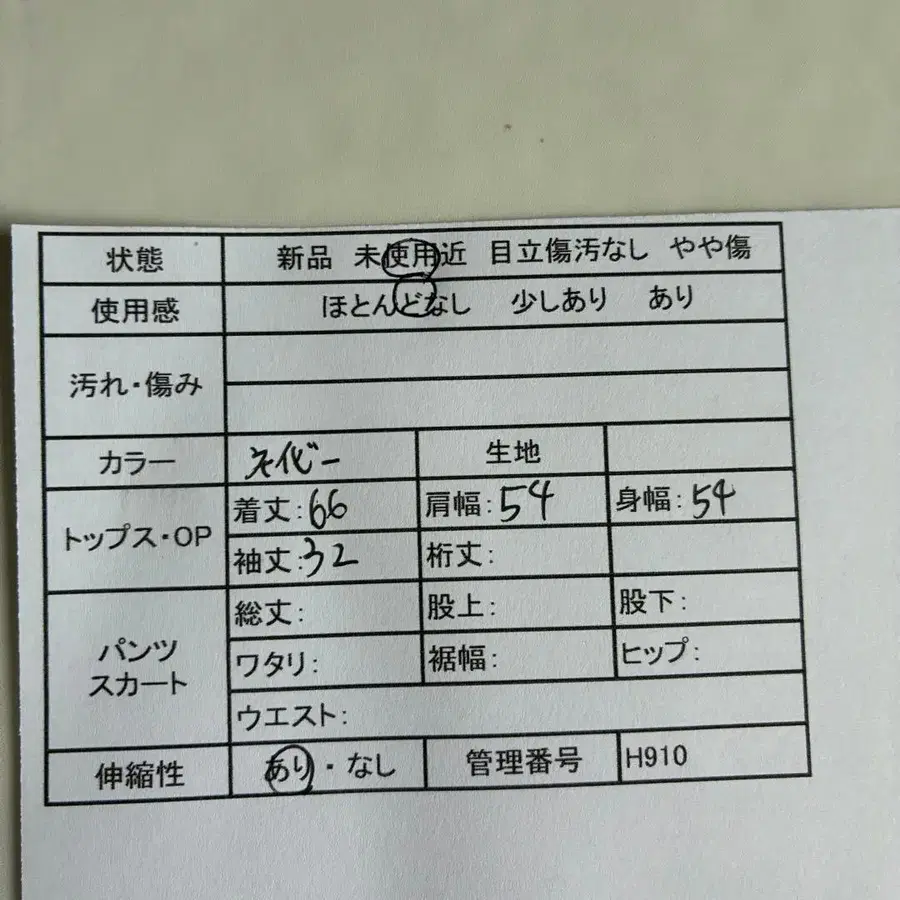 状態 新品 未使用近 目立傷汚なし やや傷
使用感 ほとんどなし 少しあり あり
汚れ・傷み
カラー ネイビー 生地
トップス・OP
着丈:66 肩幅:54 身幅:54
袖丈:32 裄丈:
パンツ
スカート
総丈: 股上: 股下:
ワタリ: 裾幅: ヒップ:
ウエスト:
伸縮性 あり・なし 管理番号 H910